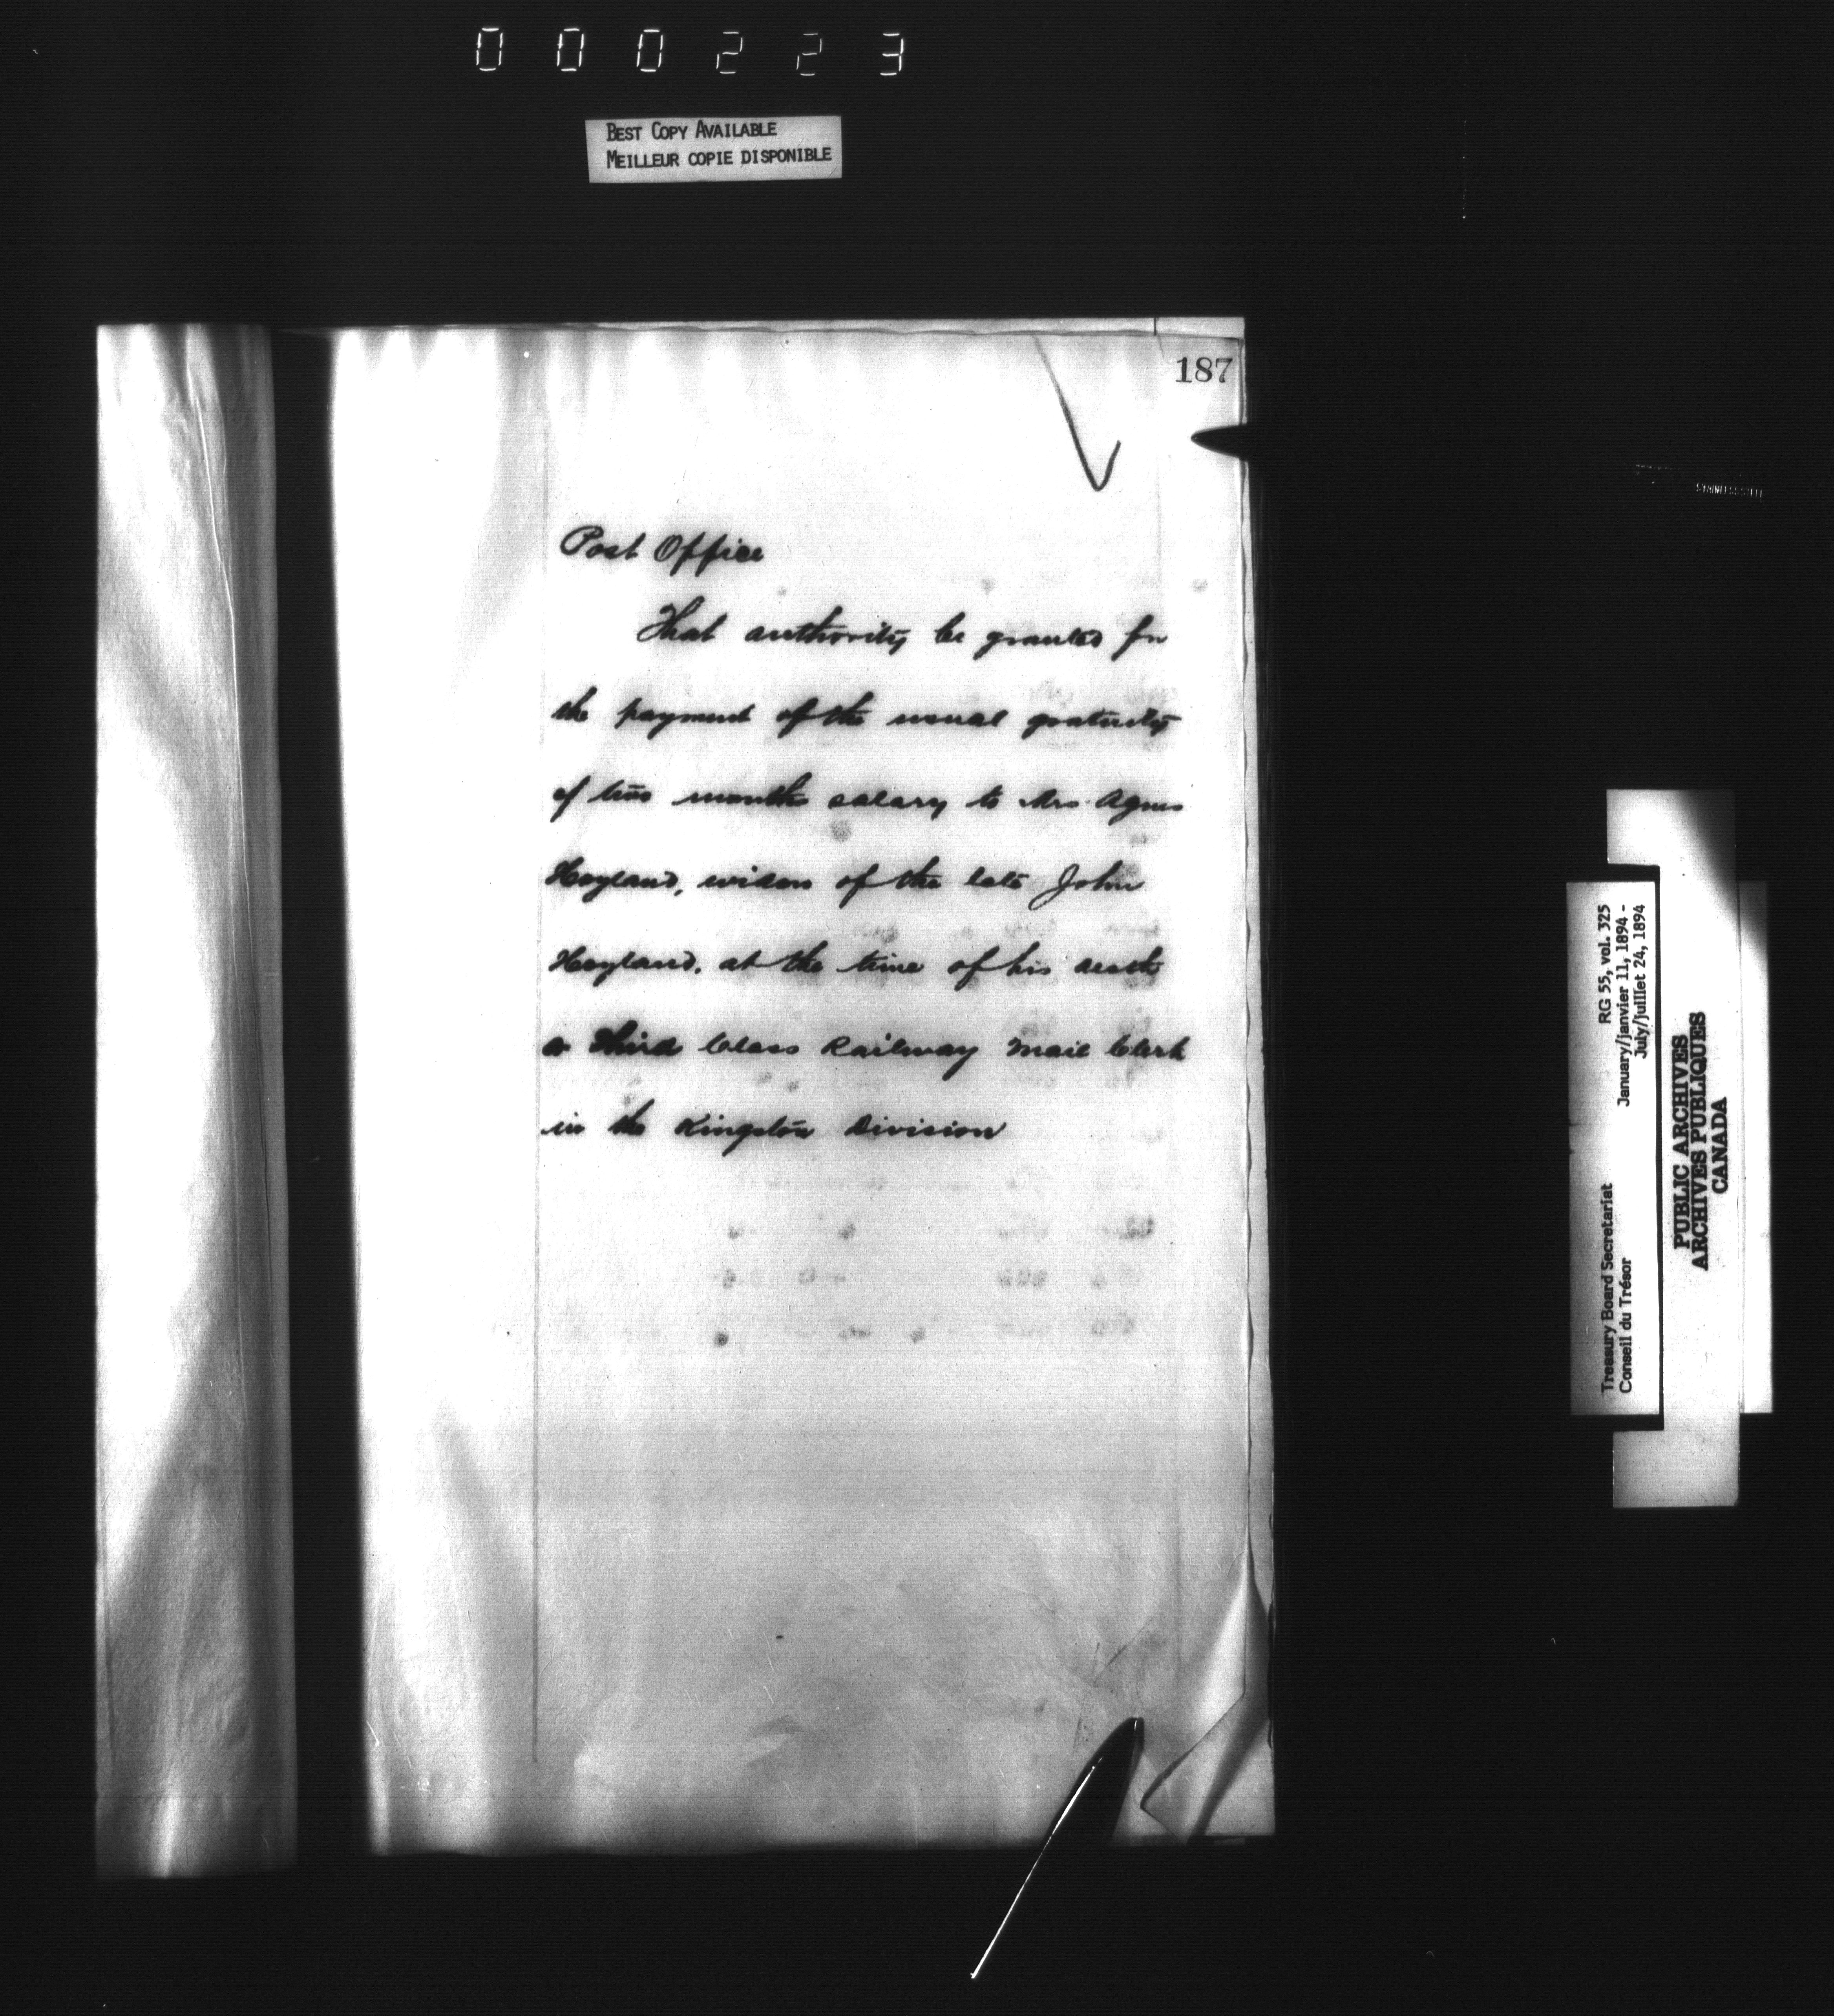 000223
BEST COPY AVAILABLE
MEILLEUR COPIE DISPONIBLE
187
Post Office
That authority be granted for
the payment of the usual gratuity
of two months salary to Mrs. Agnes
Hoyland, widow of the late John
Hoyland, at the time of his death
a Third Class Railway Mail Clerk
in the Kingston Division
STAINLESS STEEL
Treasury Board Secretariat RG 55, vol. 325
Conseil du Trésor January/janvier 11, 1894 -
July/juillet 24, 1894
PUBLIC ARCHIVES
ARCHIVES PUBLIQUES
CANADA